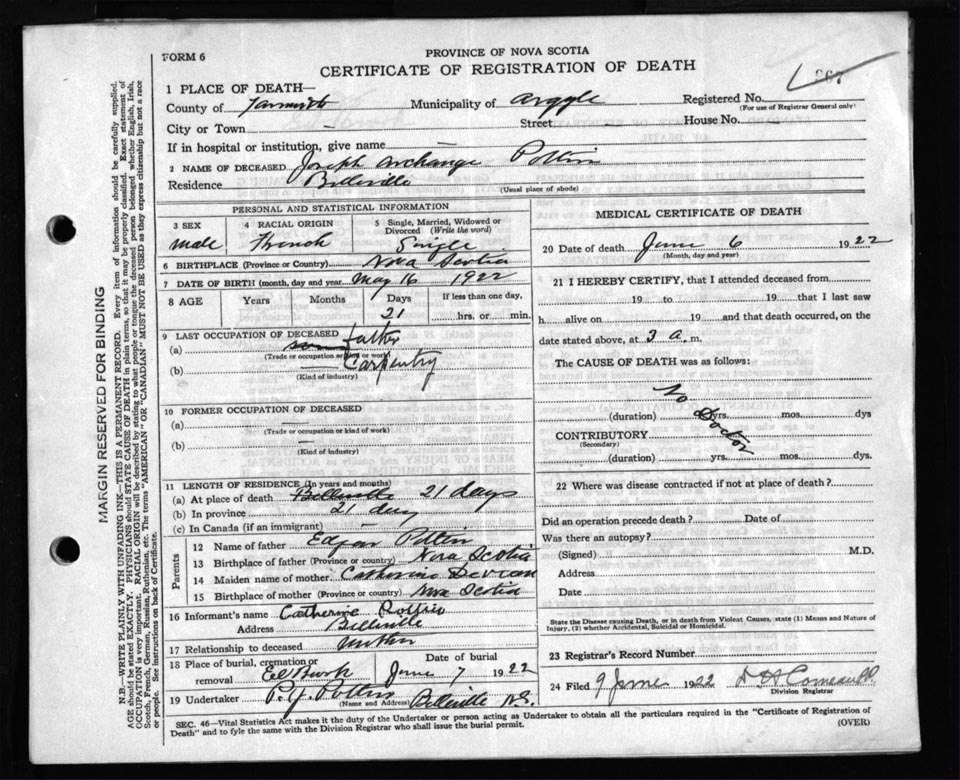 PROVINCE OF NOVA SCOTIA
FORM 6
CERTIFICATE OF REGISTRATION OF DEATH
1 PLACE OF DEATH—
County of Yarmouth Municipality of Argyle Registered No.
(For use of Registrar General only)
City or Town — Street — House No.
If in hospital or institution, give name —
2 NAME OF DECEASED Joseph Archange Pottier
Residence Belleville (Usual place of abode)
PERSONAL AND STATISTICAL INFORMATION
3 SEX 4 RACIAL ORIGIN 5 Single, Married, Widowed or Divorced (Write the word)
male French Single
6 BIRTHPLACE (Province or Country) Nova Scotia
7 DATE OF BIRTH (month, day and year) May 16 1922
8 AGE Years Months Days If less than one day,
21 hrs. or min.
9 LAST OCCUPATION OF DECEASED father
(a)
(Trade or occupation or kind of work)
(b) Carpentry
(Kind of industry)
10 FORMER OCCUPATION OF DECEASED
(a) —
(Trade or occupation or kind of work)
(b) —
(Kind of industry)
11 LENGTH OF RESIDENCE (In years and months)
(a) At place of death Belleville 21 days
(b) In province 21 day
(c) In Canada (if an immigrant)
Parents
12 Name of father Edgar Pottier
13 Birthplace of father (Province or country) Nova Scotia
14 Maiden name of mother Catherine
15 Birthplace of mother (Province or country) Nova Scotia
16 Informant's name Catherine Pottier
Address Belleville
17 Relationship to deceased mother
18 Place of burial, cremation or removal Date of burial
Eel Brook June 7 1922
19 Undertaker Pottier Belleville N.S.
(Name and Address)
MEDICAL CERTIFICATE OF DEATH
20 Date of death June 6 1922
(Month, day and year)
21 I HEREBY CERTIFY, that I attended deceased from
19 to 19 that I last saw
h alive on 19 and that death occurred, on
date stated above, at 3 a. m.
The CAUSE OF DEATH was as follows:
No Doctor
(duration) yrs. mos. dys
CONTRIBUTORY
(Secondary)
(duration) yrs. mos. dys.
22 Where was disease contracted if not at place of death?
Did an operation precede death? Date of
Was there an autopsy?
(Signed) M.D.
Address
Date
State the Disease causing Death, or in death from Violent Causes, state (1) Means and Nature of Injury, (2) whether Accidental, Suicidal or Homicidal.
23 Registrar's Record Number
24 Filed 9 June 1922
Division Registrar
SEC. 46—Vital Statistics Act makes it the duty of the Undertaker or person acting as Undertaker to obtain all the particulars required in the "Certificate of Registration of
Death" and to fyle the same with the Division Registrar who shall issue the burial permit. (OVER)
MARGIN RESERVED FOR BINDING
N.B.—WRITE PLAINLY WITH UNFADING INK—THIS IS A PERMANENT RECORD. Every item of information should be carefully supplied.
AGE should be stated EXACTLY. PHYSICIANS should STATE CAUSE OF DEATH in plain terms, so that it may be properly classified. Exact statement of
OCCUPATION is very important. RACIAL ORIGIN will be described by stating to what people or tongue the deceased person belonged whether English, Irish,
Scotch, French, German, Russian, Ruthenian, etc. The terms "AMERICAN" OR "CANADIAN" MUST NOT BE USED as they express citizenship but not a race
or people. See instructions on back of Certificate.